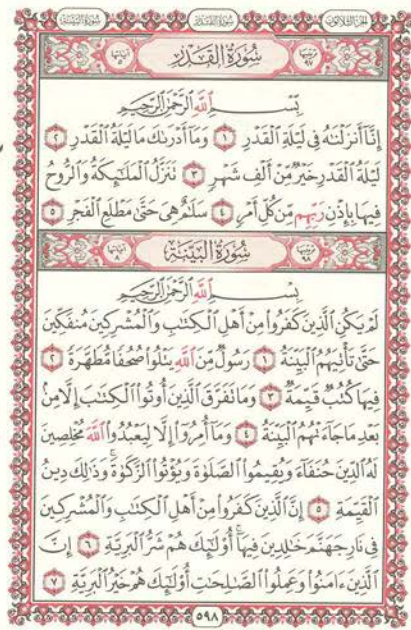 سُورَةُ البَيِّنَةِ سُورَةُ القَدْرِ الجُزْءُ الثَّلَاثُونَ
ترتيبها ٩٧ سُورَةُ القَدْرِ آياتها ٥
بِسْمِ اللَّهِ الرَّحْمَٰنِ الرَّحِيمِ
إِنَّا أَنزَلْنَٰهُ فِى لَيْلَةِ ٱلْقَدْرِ ١ وَمَآ أَدْرَىٰكَ مَا لَيْلَةُ ٱلْقَدْرِ ٢
لَيْلَةُ ٱلْقَدْرِ خَيْرٌ مِّنْ أَلْفِ شَهْرٍ ٣ تَنَزَّلُ ٱلْمَلَٰٓئِكَةُ وَٱلرُّوحُ
فِيهَا بِإِذْنِ رَبِّهِم مِّن كُلِّ أَمْرٍ ٤ سَلَٰمٌ هِىَ حَتَّىٰ مَطْلَعِ ٱلْفَجْرِ ٥
سُورَةُ البَيِّنَةِ آياتها ٨
بِسْمِ اللَّهِ الرَّحْمَٰنِ الرَّحِيمِ
لَمْ يَكُنِ ٱلَّذِينَ كَفَرُوا۟ مِنْ أَهْلِ ٱلْكِتَٰبِ وَٱلْمُشْرِكِينَ مُنفَكِّينَ
حَتَّىٰ تَأْتِيَهُمُ ٱلْبَيِّنَةُ ١ رَسُولٌ مِّنَ ٱللَّهِ يَتْلُوا۟ صُحُفًا مُّطَهَّرَةً ٢
فِيهَا كُتُبٌ قَيِّمَةٌ ٣ وَمَا تَفَرَّقَ ٱلَّذِينَ أُوتُوا۟ ٱلْكِتَٰبَ إِلَّا مِنۢ
بَعْدِ مَا جَآءَتْهُمُ ٱلْبَيِّنَةُ ٤ وَمَآ أُمِرُوٓا۟ إِلَّا لِيَعْبُدُوا۟ ٱللَّهَ مُخْلِصِينَ
لَهُ ٱلدِّينَ حُنَفَآءَ وَيُقِيمُوا۟ ٱلصَّلَوٰةَ وَيُؤْتُوا۟ ٱلزَّكَوٰةَ ۚ وَذَٰلِكَ دِينُ
ٱلْقَيِّمَةِ ٥ إِنَّ ٱلَّذِينَ كَفَرُوا۟ مِنْ أَهْلِ ٱلْكِتَٰبِ وَٱلْمُشْرِكِينَ
فِى نَارِ جَهَنَّمَ خَٰلِدِينَ فِيهَآ ۚ أُو۟لَٰٓئِكَ هُمْ شَرُّ ٱلْبَرِيَّةِ ٦ إِنَّ
ٱلَّذِينَ ءَامَنُوا۟ وَعَمِلُوا۟ ٱلصَّٰلِحَٰتِ أُو۟لَٰٓئِكَ هُمْ خَيْرُ ٱلْبَرِيَّةِ ٧
٥٩٨